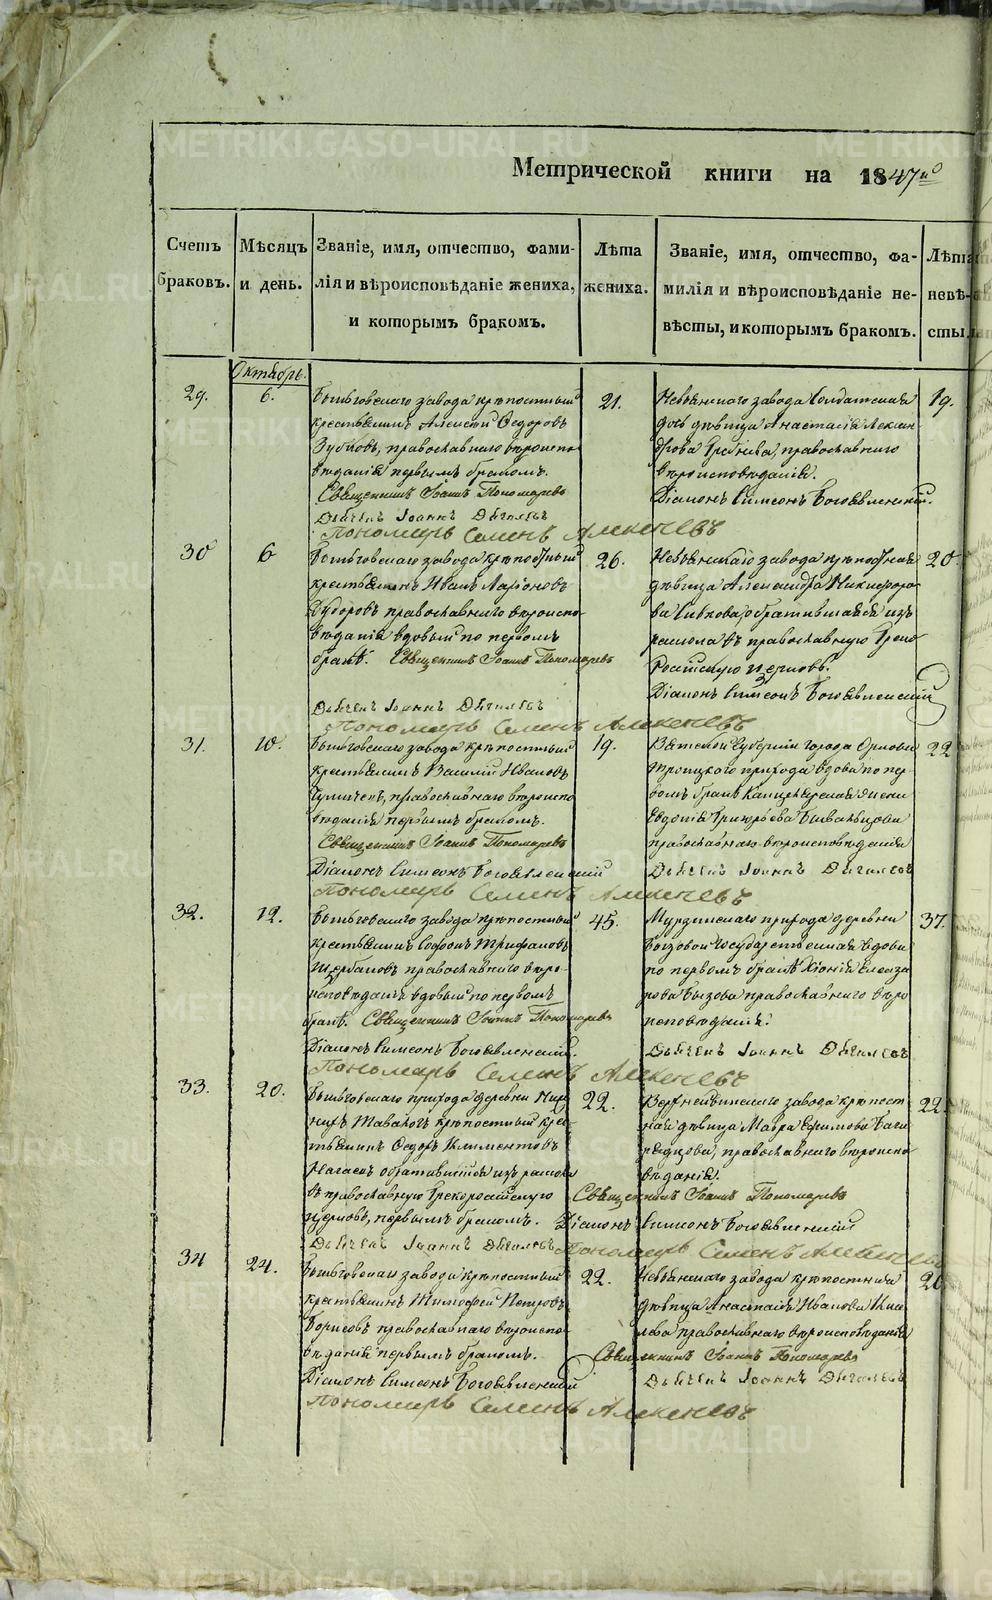 Метрической книги на 1847й
Счетъ браковъ.
Мѣсяцъ и день.
Званіе, имя, отчество, фами-
лія и вѣроисповѣданіе жениха,
и которымъ бракомъ.
Лѣта
жениха.
Званіе, имя, отчество, фа-
милія и вѣроисповѣданіе не-
вѣсты, и которымъ бракомъ.
Лѣта
невѣ-
сты
Октябрь.
29.
6.
завода крѣпостный
крестьянинъ Алексѣй Ѳедоровъ
Зубковъ, православнаго вѣроиспо-
вѣданія первымъ бракомъ.
Священникъ Іоаннъ Пономаревъ
Дьячекъ Іоаннъ Дягилевъ
Пономарь Семенъ Алексѣевъ
21.
Невьянскаго завода Солдатская
дочь дѣвица Анастасія Алексан-
дрова православнаго
вѣроисповѣданія.
Діаконъ Симеонъ Богоявленскій.
19.
30
6
завода крѣпостный
крестьянинъ Иванъ Ларіоновъ
православнаго вѣроиспо-
вѣданія вдовый по первомъ
бракѣ. Священникъ Іоаннъ Пономаревъ
Дьячекъ Іоаннъ Дягилевъ
Пономарь Семенъ Алексѣевъ
26.
Невьянскаго завода крѣпостная
дѣвица Александра Никифоро-
ва обратившаяся изъ
раскола въ православную Греко-
Россійскую церковь.
Діаконъ Симеонъ Богоявленскій
20.
31.
10.
завода крѣпостный
крестьянинъ Василій Ивановъ
православнаго вѣроиспо-
вѣданія первымъ бракомъ.
Священникъ Іоаннъ Пономаревъ
Діаконъ Симеонъ Богоявленскій
Пономарь Семенъ Алексѣевъ
19.
Вятской Губерніи города Орлова
Троицкаго прихода вдова по пер-
вомъ бракѣ Канцелярская
Евдокія Григорьева
православнаго вѣроисповѣданія
Дьячекъ Іоаннъ Дягилевъ
22
32.
12.
завода крѣпостный
крестьянинъ Софонъ Трифановъ
Щербаковъ православнаго вѣро-
исповѣданія вдовый по первомъ
бракѣ. Священникъ Іоаннъ Пономаревъ
Діаконъ Симеонъ Богоявленскій.
Пономарь Семенъ Алексѣевъ
45.
Мурзинскаго прихода деревни
Государственная вдова
по первомъ бракѣ Хіонія Елеаза-
рова православнаго вѣро-
исповѣданія.
Дьячекъ Іоаннъ Дягилевъ
37.
33.
20.
прихода деревни Ниж-
нихъ Тавологъ крѣпостный кре-
стьянинъ Ѳедоръ Климентовъ
обратившійся изъ раскола
въ православную Грекороссійскую
церковь, первымъ бракомъ.
Дьячекъ Іоаннъ Дягилевъ
22.
Верхнейвинскаго завода крѣпост-
ная дѣвица Мавра Ефимова
православнаго вѣроиспо-
вѣданія.
Священникъ Іоаннъ Пономаревъ
Діаконъ Симеонъ Богоявленскій
Пономарь Семенъ Алексѣевъ
22.
34
24.
завода крѣпостный
крестьянинъ Тимофей Петровъ
Борисовъ православнаго вѣроиспо-
вѣданія первымъ бракомъ.
Діаконъ Симеонъ Богоявленскій
Пономарь Семенъ Алексѣевъ
22.
Невьянскаго завода крѣпостная
дѣвица Анастасія Иванова Кисе-
лева православнаго вѣроисповѣданія
Священникъ Іоаннъ Пономаревъ
Дьячекъ Іоаннъ Дягилевъ
METRIKI.GASO-URAL.RU